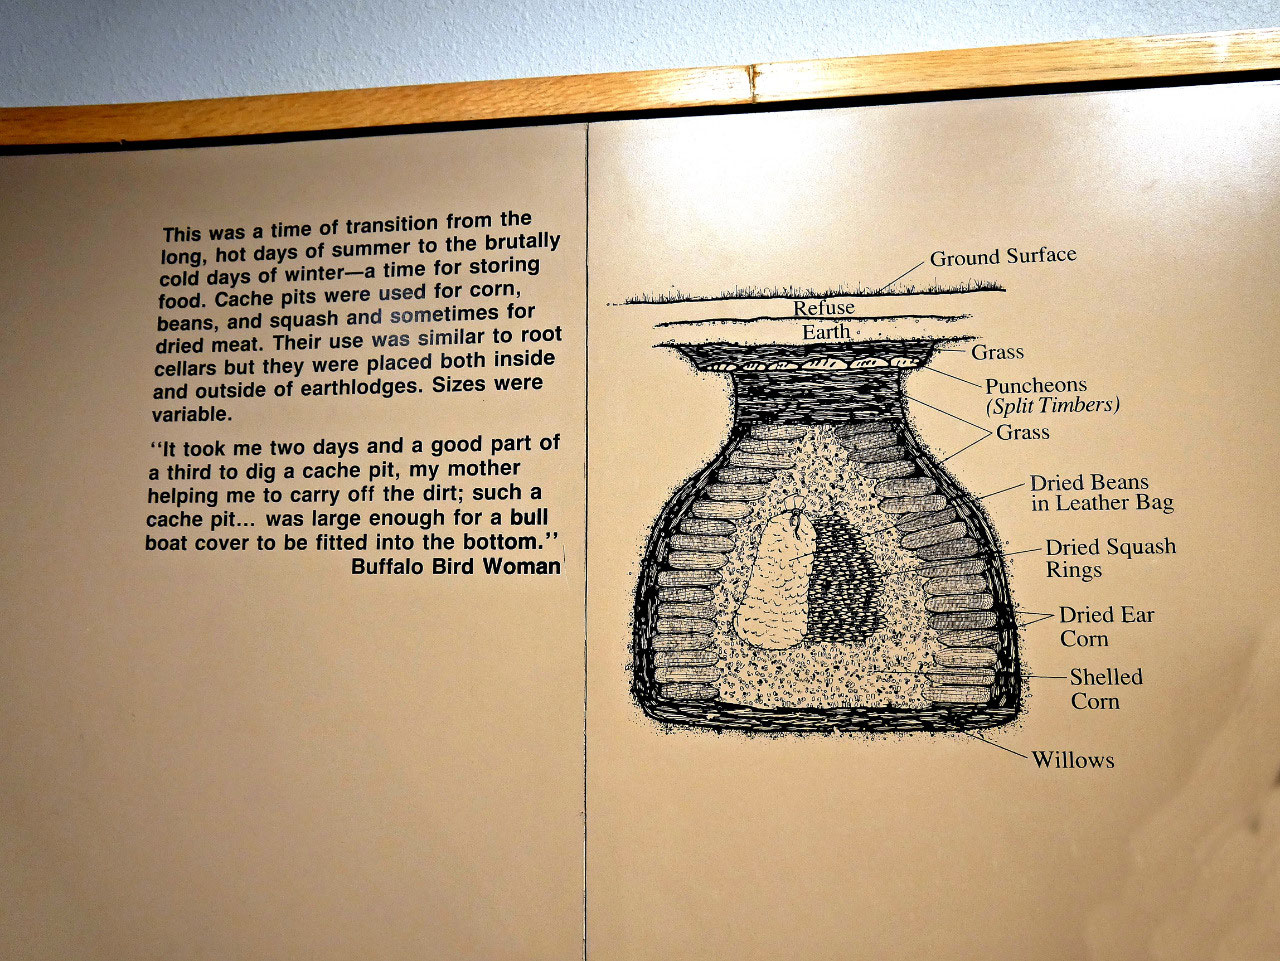 This was a time of transition from the
long, hot days of summer to the brutally
cold days of winter—a time for storing
food. Cache pits were used for corn,
beans, and squash and sometimes for
dried meat. Their use was similar to root
cellars but they were placed both inside
and outside of earthlodges. Sizes were
variable.
“It took me two days and a good part of
a third to dig a cache pit, my mother
helping me to carry off the dirt; such a
cache pit... was large enough for a bull
boat cover to be fitted into the bottom.”
Buffalo Bird Woman
Ground Surface
Refuse
Earth
Grass
Puncheons
(Split Timbers)
Grass
Dried Beans
in Leather Bag
Dried Squash
Rings
Dried Ear
Corn
Shelled
Corn
Willows